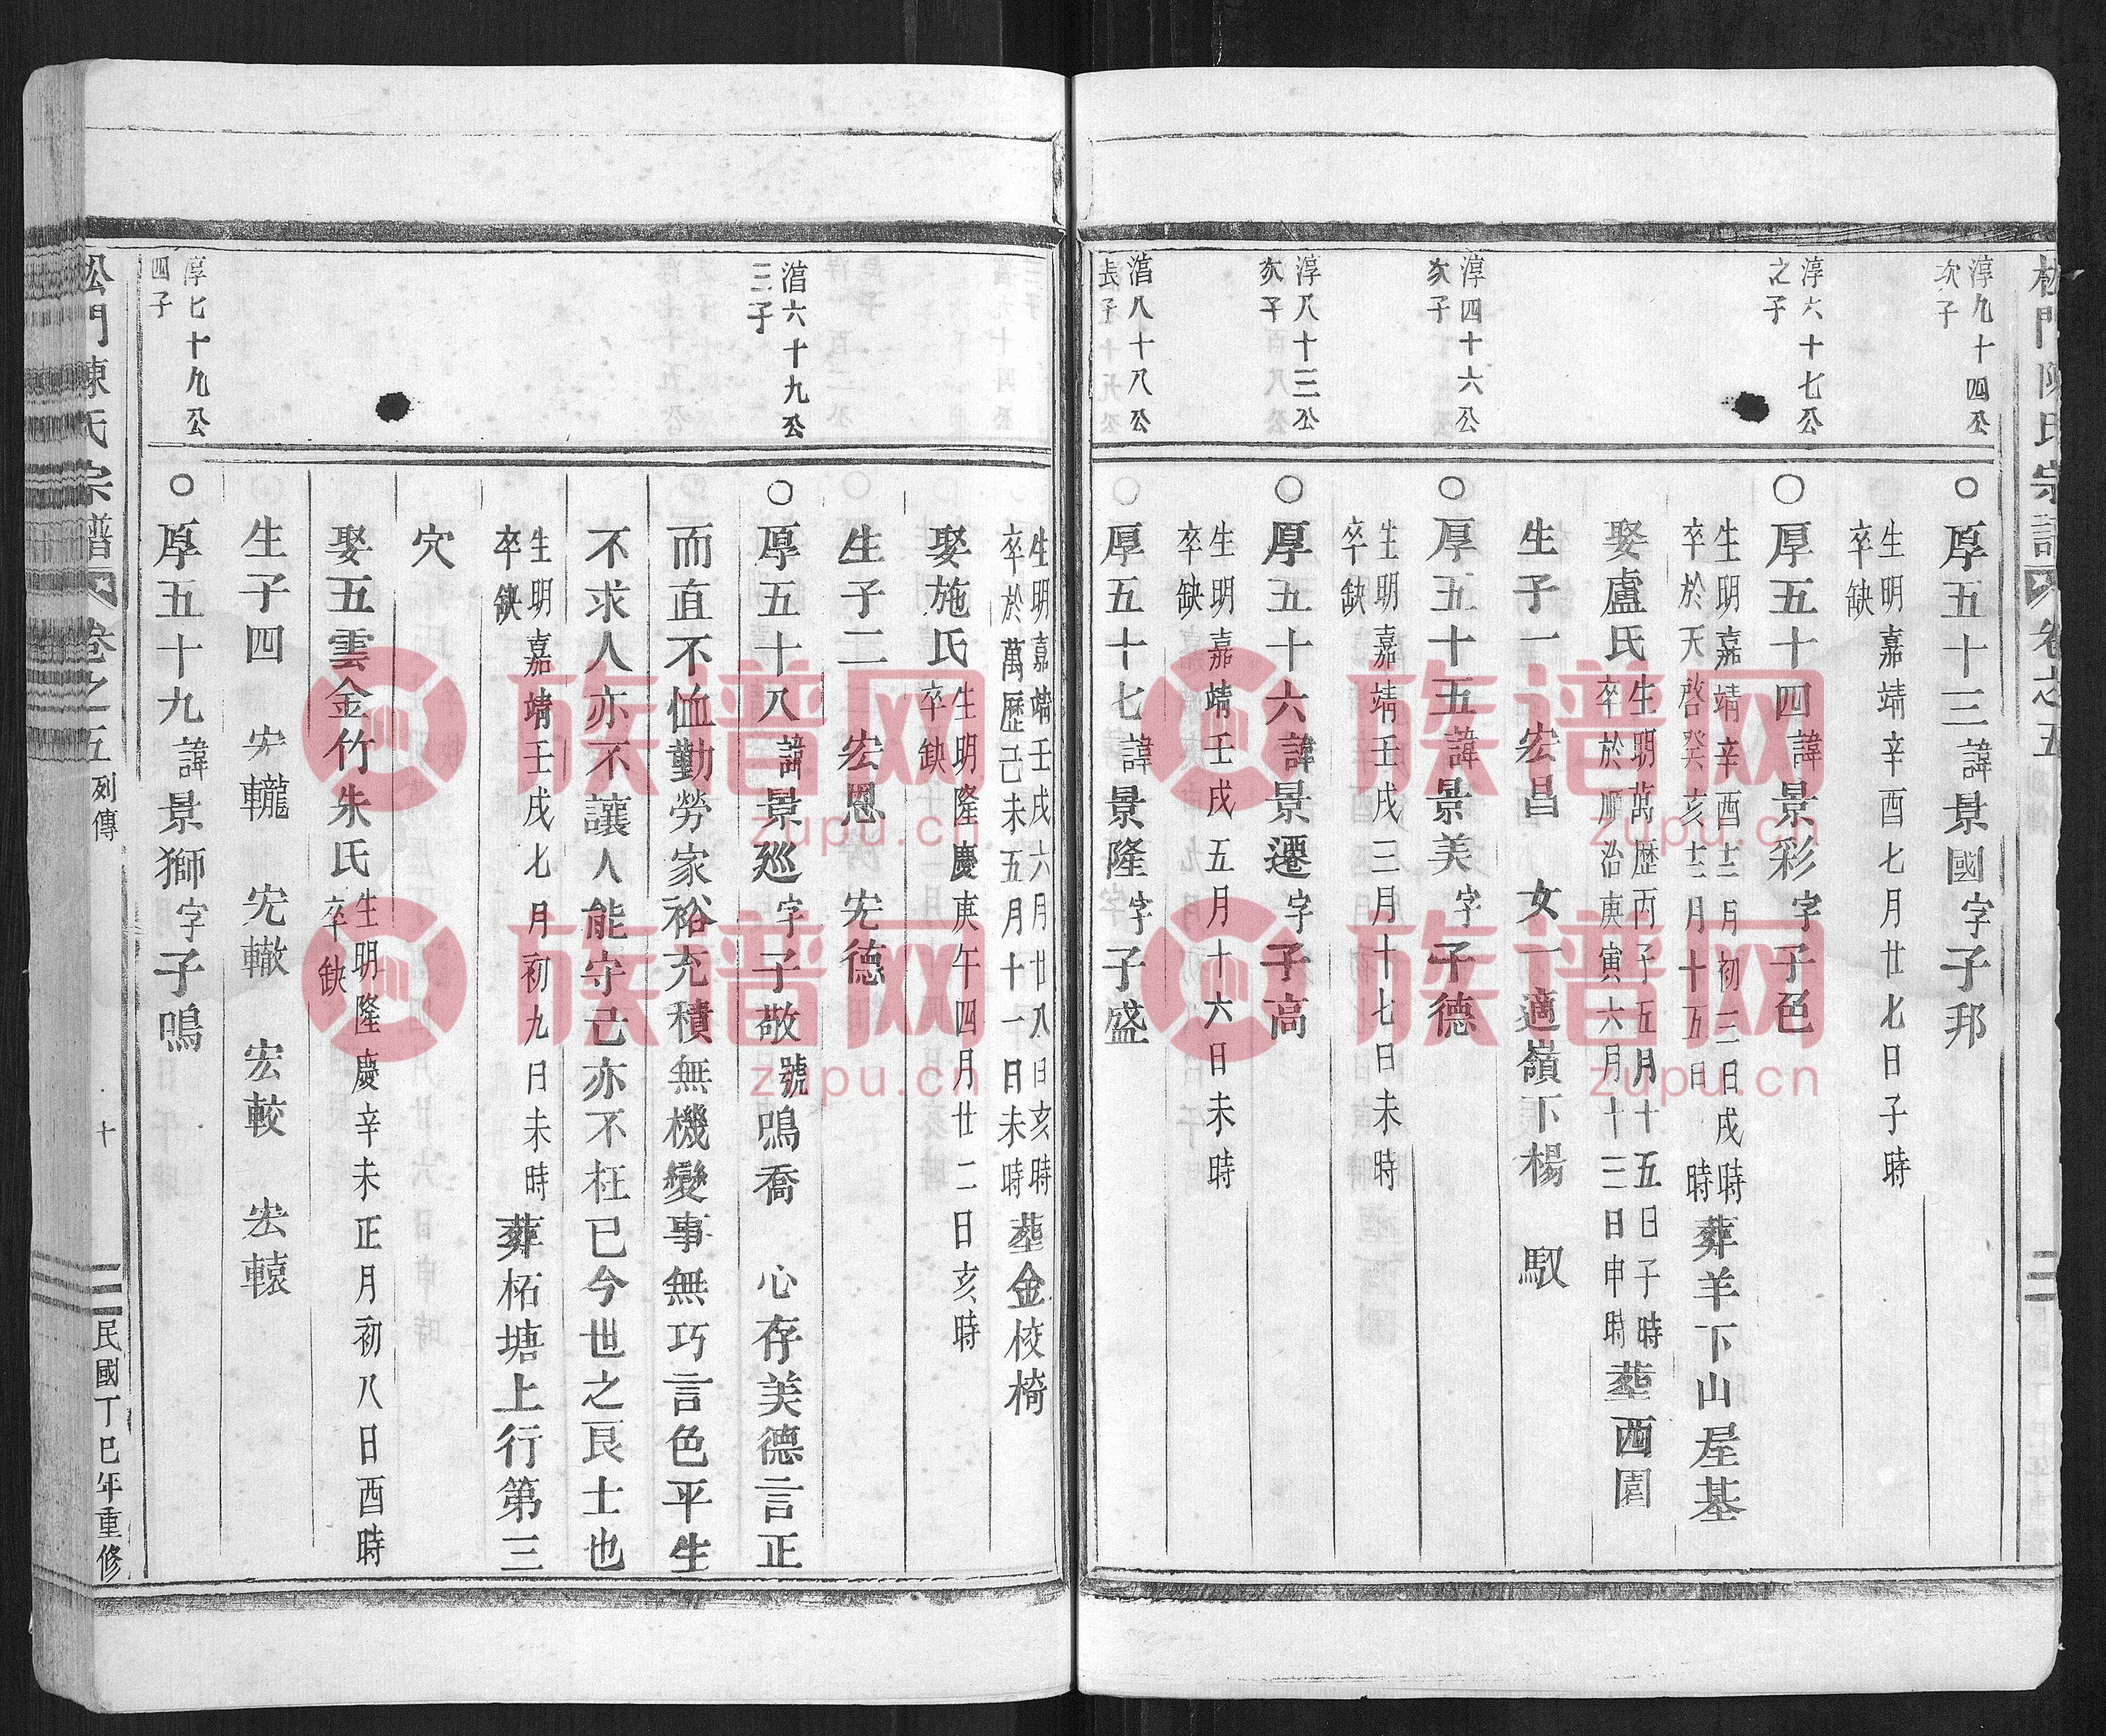 松門陳氏宗譜 卷之五
淳九十四公
次子
○厚五十三諱景國字子邦
生明嘉靖辛酉七月廿七日子時
卒缺
淳六十七公
之子
○厚五十四諱景彩字子色
生明嘉靖辛酉十二月初三日戌時
卒於天啓癸亥十二月十五日 時
葬羊下山屋基
娶盧氏
生明萬歷丙子五月十五日子時
卒於順治庚寅六月十三日申時
葬西園
生子一 宏昌 女一適嶺下楊 馭
淳四十六公
次子
○厚五十五諱景美字子德
生明嘉靖壬戌三月十七日未時
卒缺
淳八十三公
次子
○厚五十六諱景遷字子高
生明嘉靖壬戌五月十六日未時
卒缺
湻八十八公
長子
○厚五十七諱景隆字子盛
生明嘉靖壬戌六月廿八日亥時
卒於萬歷己未五月十一日未時
葬金校椅
娶施氏
生明隆慶庚午四月廿二日亥時
卒缺
生子二 宏恩 宏德
湻六十九公
三子
○厚五十八諱景巡字子敬號鳴喬 心存美德言正
而直不恤勤勞家裕充積無機變事無巧言色平生
不求人亦不讓人能守己亦不枉已今世之良士也
生明嘉靖壬戌七月初九日未時
卒缺
葬柘塘上行第三
穴
娶五雲金竹朱氏
生明隆慶辛未正月初八日酉時
卒缺
生子四 宏轣 宏轍 宏較 宏轅
淳七十九公
四子
○厚五十九諱景獅字子鳴
松門陳氏宗譜 卷之五 列傳 十 民國丁巳年重修
族谱网
zupu.cn
族谱网
zupu.cn
族谱网
zupu.cn
族谱网
zupu.cn